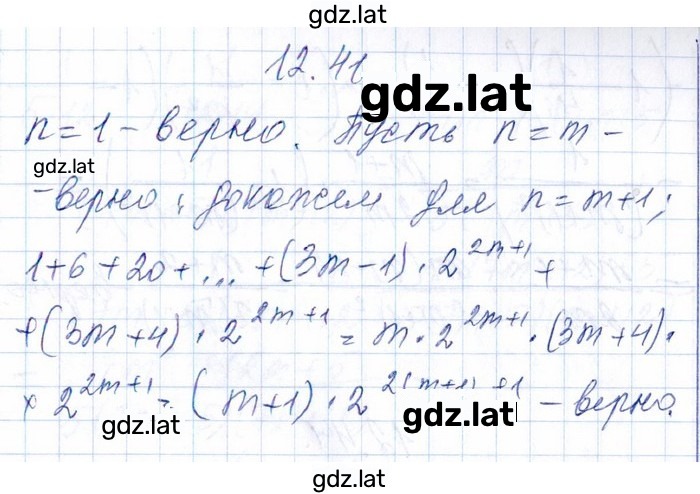 gdz.lat
12.41
gdz.lat
n=1 – верно. Пусть n=m –
gdz.lat
– верно, докажем для n=m+1;
1+6+20+...+(3m-1)·2^{2m+1}+
+(3m+4)·2^{2m+1}=m·2^{2m+1}·(3m+4)·
×2^{2m+1}=(m+1)·2^{2(m+1)+1} – верно.
gdz.lat
gdz.lat
gdz.lat